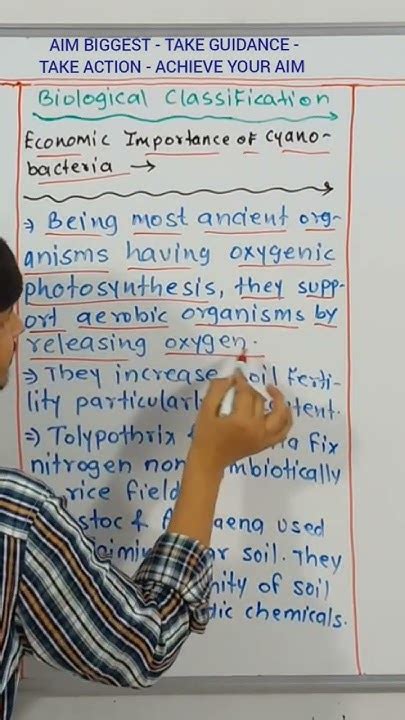 AIM BIGGEST - TAKE GUIDANCE -
TAKE ACTION - ACHIEVE YOUR AIM
Biological Classification
Economic Importance of Cyano-
bacteria →
⇒ Being most ancient org-
anisms having oxygenic
photosynthesis, they supp-
ort aerobic organisms by
releasing oxygen.
⇒ They increase soil ferti-
lity
⇒ Tolypothrix fix
nitrogen
rice
used
soil. They
of soil
chemicals.